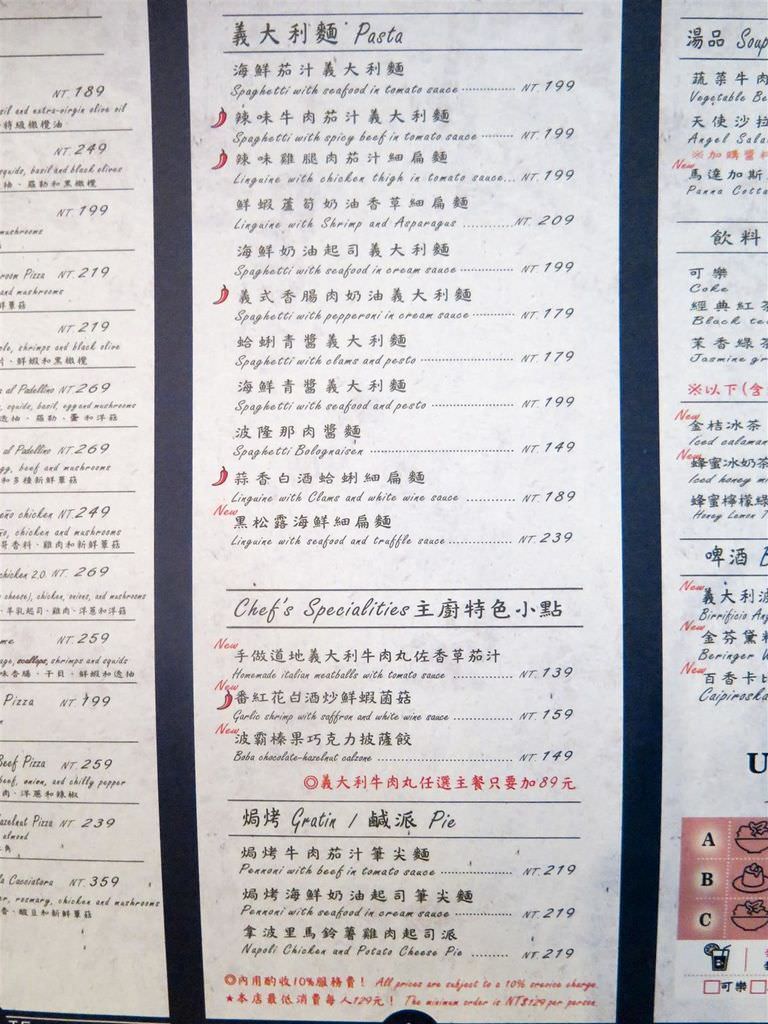 NT. 189
sil and extra-virgin olive oil
特級橄欖油
NT. 249
squids, basil and black olives
抽、羅勒和黑橄欖
NT. 199
mushrooms
room Pizza NT. 219
and mushrooms
鮮蕈菇
NT. 219
le, shrimps and black olive
片、鮮蝦和黑橄欖
al Padellino NT. 269
squids, basil, egg and mushrooms
透抽、羅勒、蛋和洋菇
al Padellino NT. 269
gg, beef and mushrooms
和多種新鮮蕈菇
eño chicken NT. 249
ño, chicken and mushrooms
哥香料、雞肉和新鮮蕈菇
chicken 2.0 NT. 269
cheese), chicken, onions, and mushrooms
、羊乳起司、雞肉、洋蔥和洋菇
me NT. 259
age, scallops, shrimps and squids
味香腸、干貝、鮮蝦和透抽
Pizza NT. 199
Beef Pizza NT. 259
beef, onion, and chilly pepper
肉、洋蔥和辣椒
Hazelnut Pizza NT 239
almond
Cacciatora NT. 359
rosmary, chicken and mushrooms
香、酸豆和新鮮蕈菇
義大利麵 Pasta
海鮮茄汁義大利麵
Spaghetti with seafood in tomato sauce NT. 199
辣味牛肉茄汁義大利麵
Spaghetti with spicy beef in tomato sauce NT. 199
辣味雞腿肉茄汁細扁麵
Linguine with chicken thigh in tomato sauce... NT. 199
鮮蝦蘆筍奶油香草細扁麵
Linguine with Shrimp and Asparagus NT. 209
海鮮奶油起司義大利麵
Spaghetti with seafood in cream sauce NT. 199
義式香腸肉奶油義大利麵
Spaghetti with pepperoni in cream sauce NT. 179
蛤蜊青醬義大利麵
Spaghetti with clams and pesto NT. 179
海鮮青醬義大利麵
Spaghetti with seafood and pesto NT. 199
波隆那肉醬麵
Spaghetti Bolognaisen NT. 149
蒜香白酒蛤蜊細扁麵
Linguine with Clams and white wine sauce NT. 189
New
黑松露海鮮細扁麵
Linguine with seafood and truffle sauce NT. 239
Chef's Specialities 主廚特色小點
New
手做道地義大利牛肉丸佐香草茄汁
Homemade italian meatballs with tomato sauce NT. 139
New
番紅花白酒炒鮮蝦菌菇
Garlic shrimp with saffron and white wine sauce NT. 159
New
波霸榛果巧克力披薩餃
Boba chocolate-hazelnut calzone NT. 149
◎義大利牛肉丸任選主餐只要加89元
焗烤 Gratin / 鹹派 Pie
焗烤牛肉茄汁筆尖麵
Pennoni with beef in tomato sauce NT. 219
焗烤海鮮奶油起司筆尖麵
Pennoni with seafood in cream sauce NT. 219
拿波里馬鈴薯雞肉起司派
Napoli Chicken and Potato Cheese Pie NT. 219
◎內用酌收10%服務費！ All prices are subject to a 10% srervice charge.
★本店最低消費每人129元！ The minimum order is NT$129 per person.
湯品 Soup
蔬菜牛肉
Vegetable Be
天使沙拉
Angel Sala
※加購醬料
New
馬達加斯
Panna Cotta
飲料
可樂
Coke
經典紅茶
Black tea
茉香綠茶
Jasmine gr
※以下(含
New
金桔冰茶
Iced calaman
New
蜂蜜冰奶茶
Iced honey m
蜂蜜檸檬綠
Honey Lemon T
啤酒 B
New
義大利波
Birrificio Ang
New
金芬黛粉
Beringer W
New
百香卡比
Caipiroska
U
A
B
C
可樂